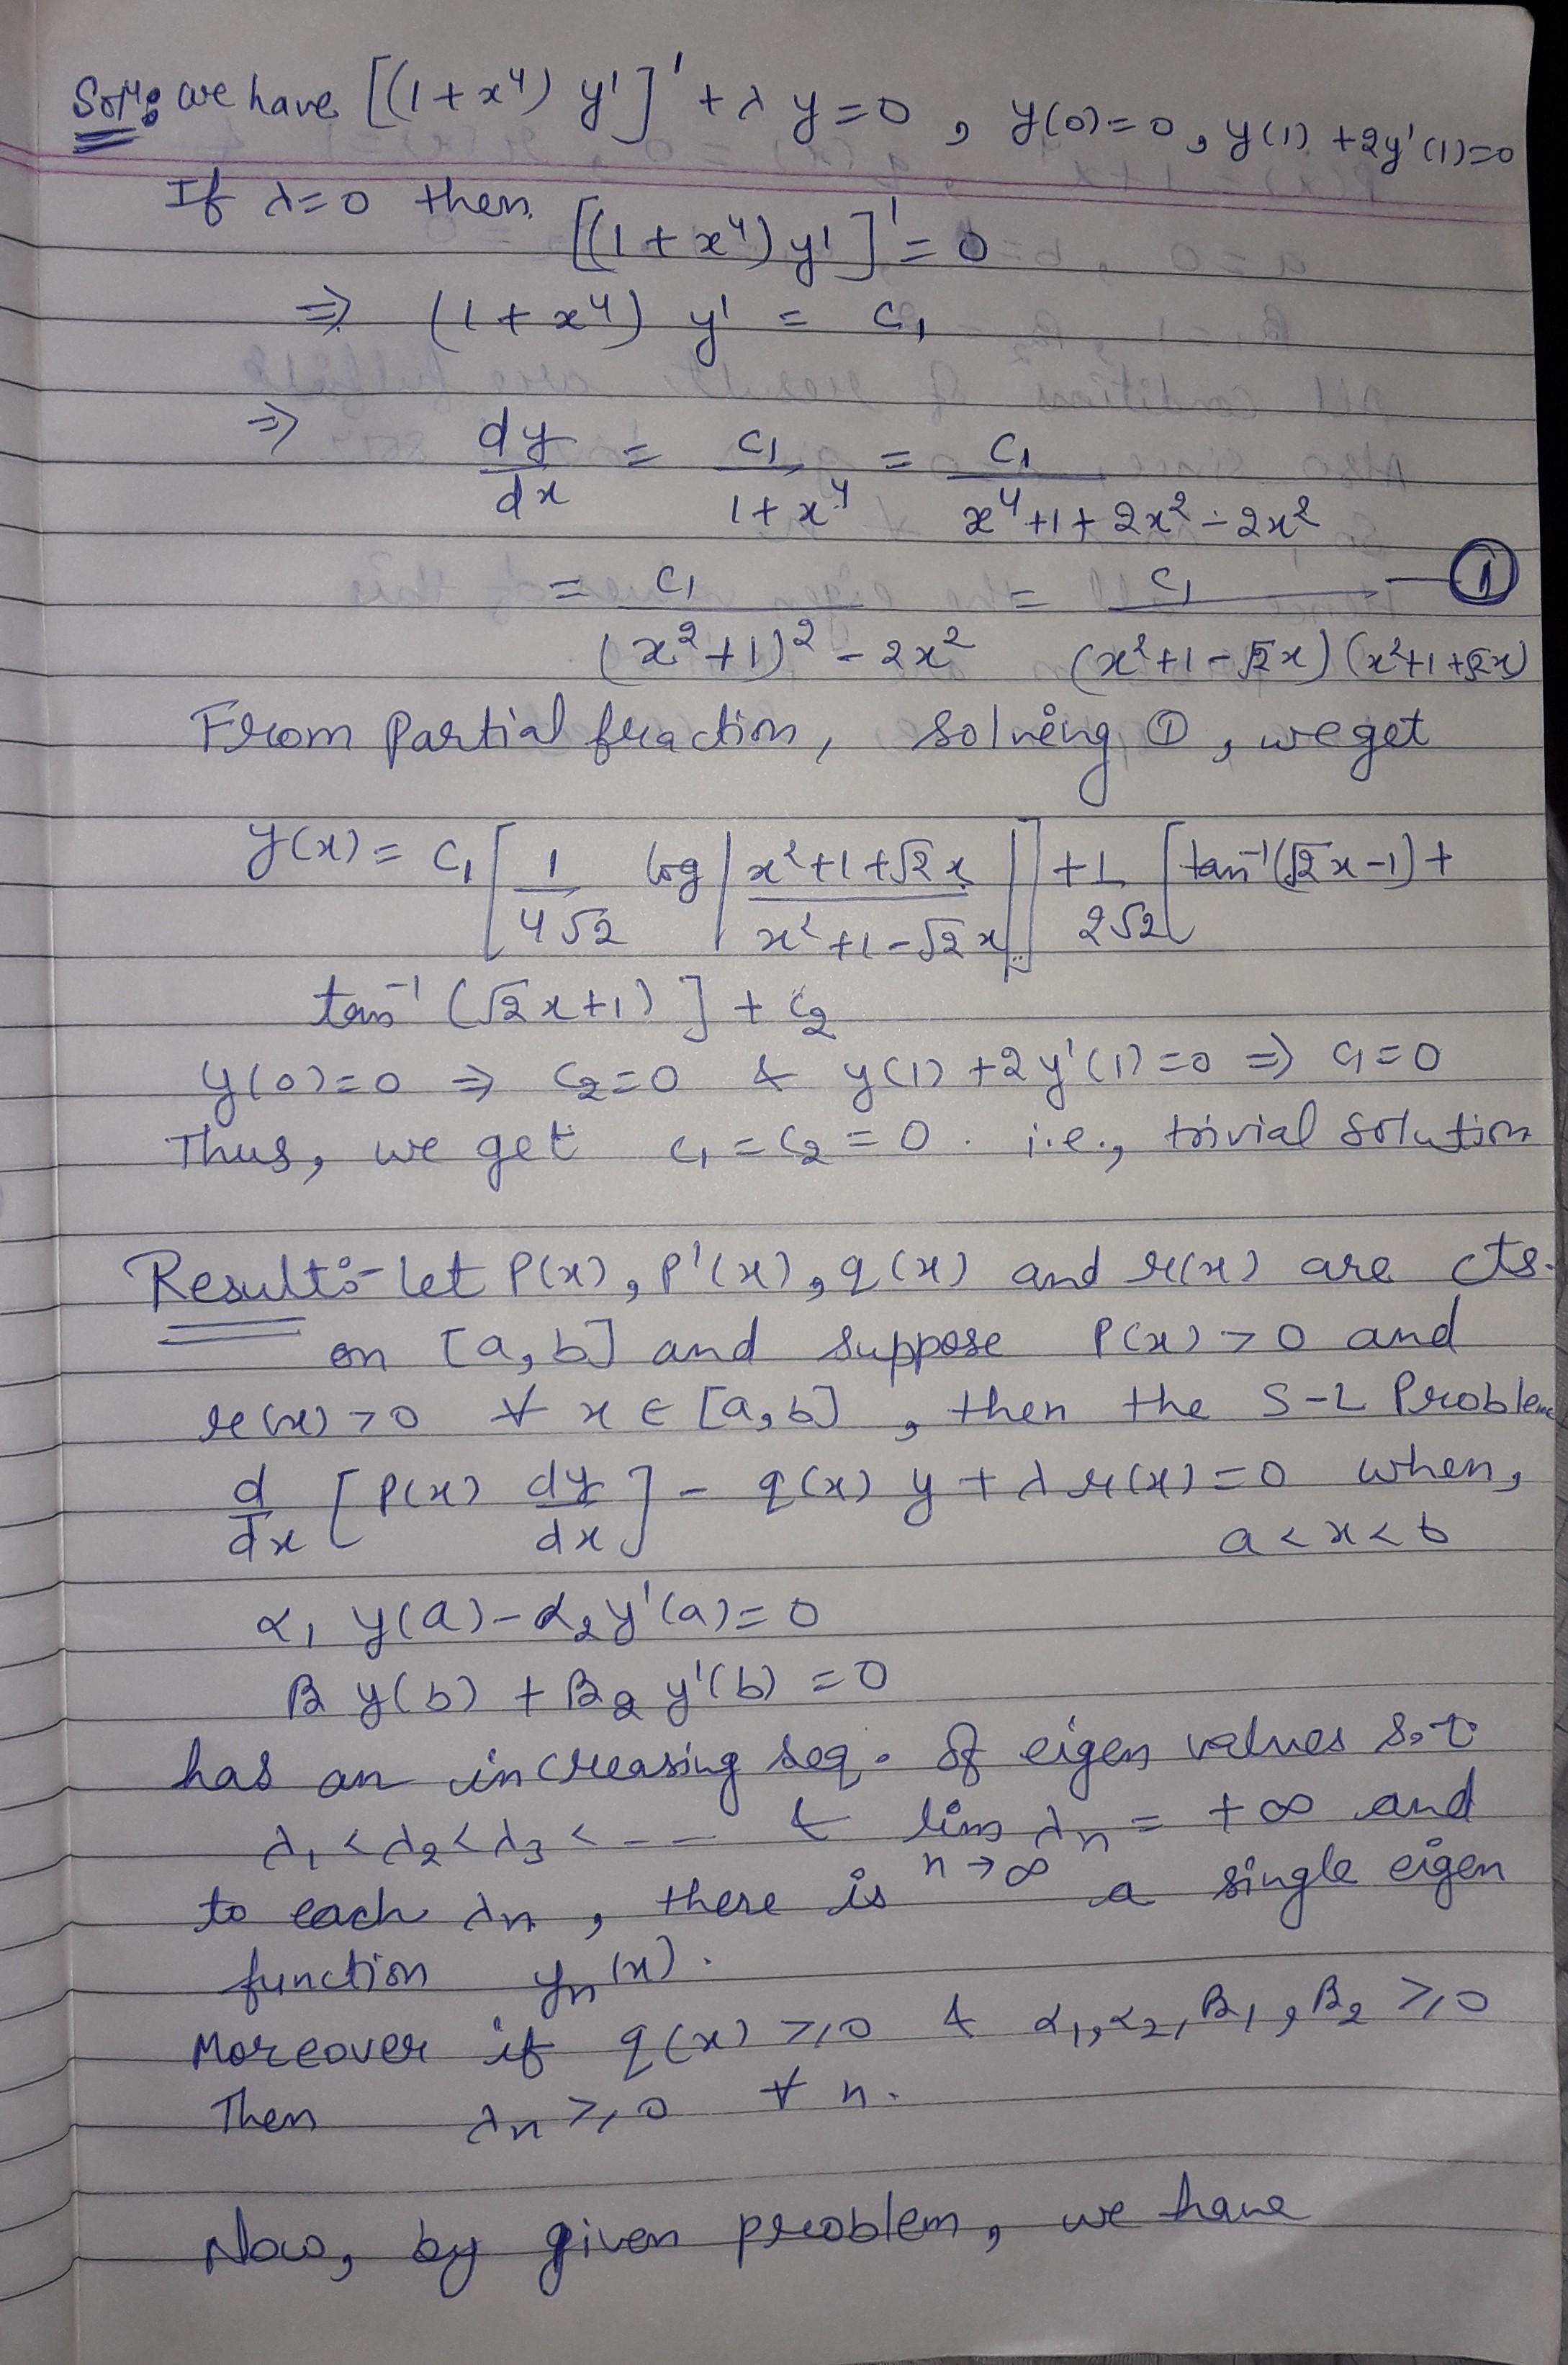 Solⁿ: we have [(1+x⁴) y']' + λ y = 0 , y(0)=0, y(1) + 2y'(1)=0
If λ=0 then [(1+x⁴) y']' = 0
⇒ (1+x⁴) y' = c₁
⇒ dy/dx = c₁/(1+x⁴) = c₁/(x⁴+1+2x²-2x²)
= c₁/((x²+1)² - 2x²) = c₁/((x²+1-√2x)(x²+1+√2x)) — ①
From Partial fraction, solving ①, we get
y(x) = c₁[1/(4√2) log|(x²+1+√2x)/(x²+1-√2x)|] + 1/(2√2) [tan⁻¹(√2x-1) +
tan⁻¹(√2x+1)] + c₂
y(0)=0 ⇒ c₂=0 & y(1)+2y'(1)=0 ⇒ c₁=0
Thus, we get c₁=c₂=0. i.e., trivial solution
Result:- let P(x), P'(x), q(x) and r(x) are cts.
on [a,b] and suppose P(x)>0 and
r(x)>0 ∀ x ∈ [a,b] , then the S-L Problem
d/dx [P(x) dy/dx] - q(x) y + λ r(x)=0 when,
a<x<b
α₁ y(a)-α₂y'(a)=0
B y(b) + B₂ y'(b) = 0
has an increasing seq. of eigen values s.t
λ₁<λ₂<λ₃<--- & lim n→∞ λn = +∞ and
to each λn, there is a single eigen
function yn(x).
Moreover if q(x) ≥0 & α₁,α₂,B₁,B₂ ≥0
Then λn ≥0 ∀ n.
Now, by given problem, we have